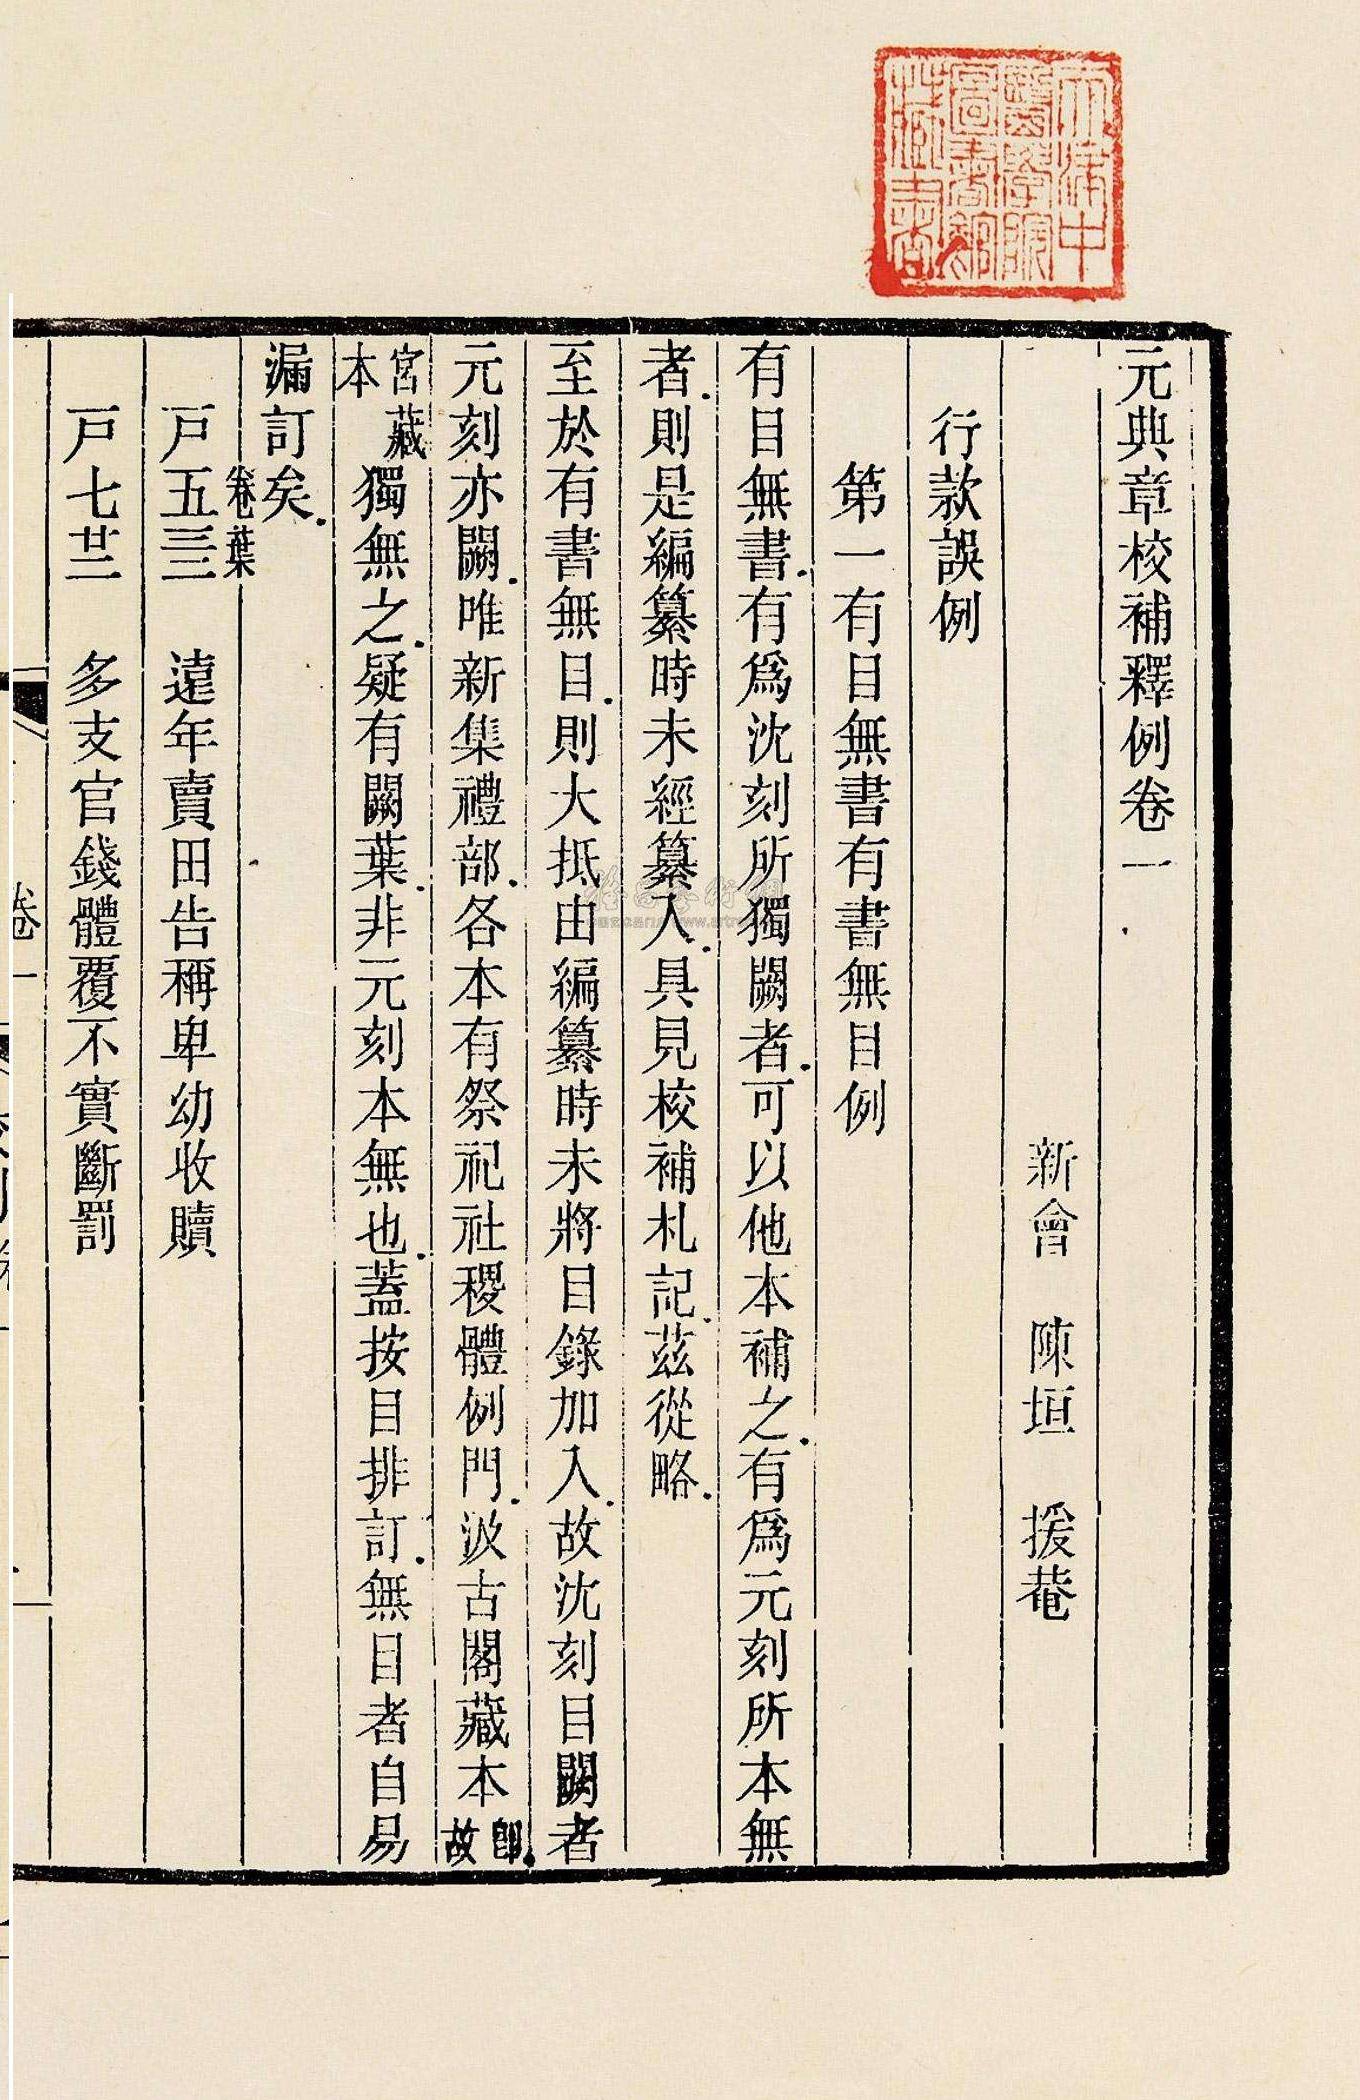 天津中
醫學院
圖書館
藏書
元典章校補釋例卷一
新會　陳垣　援菴
行款誤例
第一有目無書有書無目例
有目無書．有為沈刻所獨闕者．可以他本補之．有為元刻所本無
者．則是編纂時未經纂入．具見校補札記．茲從略．
至於有書無目．則大抵由編纂時未將目錄加入．故沈刻目闕者
元刻亦闕．唯新集禮部．各本有祭祀社稷體例門．汲古閣藏本．即故
宮藏本獨無之．疑有闕葉．非元刻本無也．蓋按目排訂．無目者自易
漏訂矣．
卷葉
戶五三三　遠年賣田告稱卑幼收贖
戶七廿二　多支官錢體覆不實斷罰
卷一